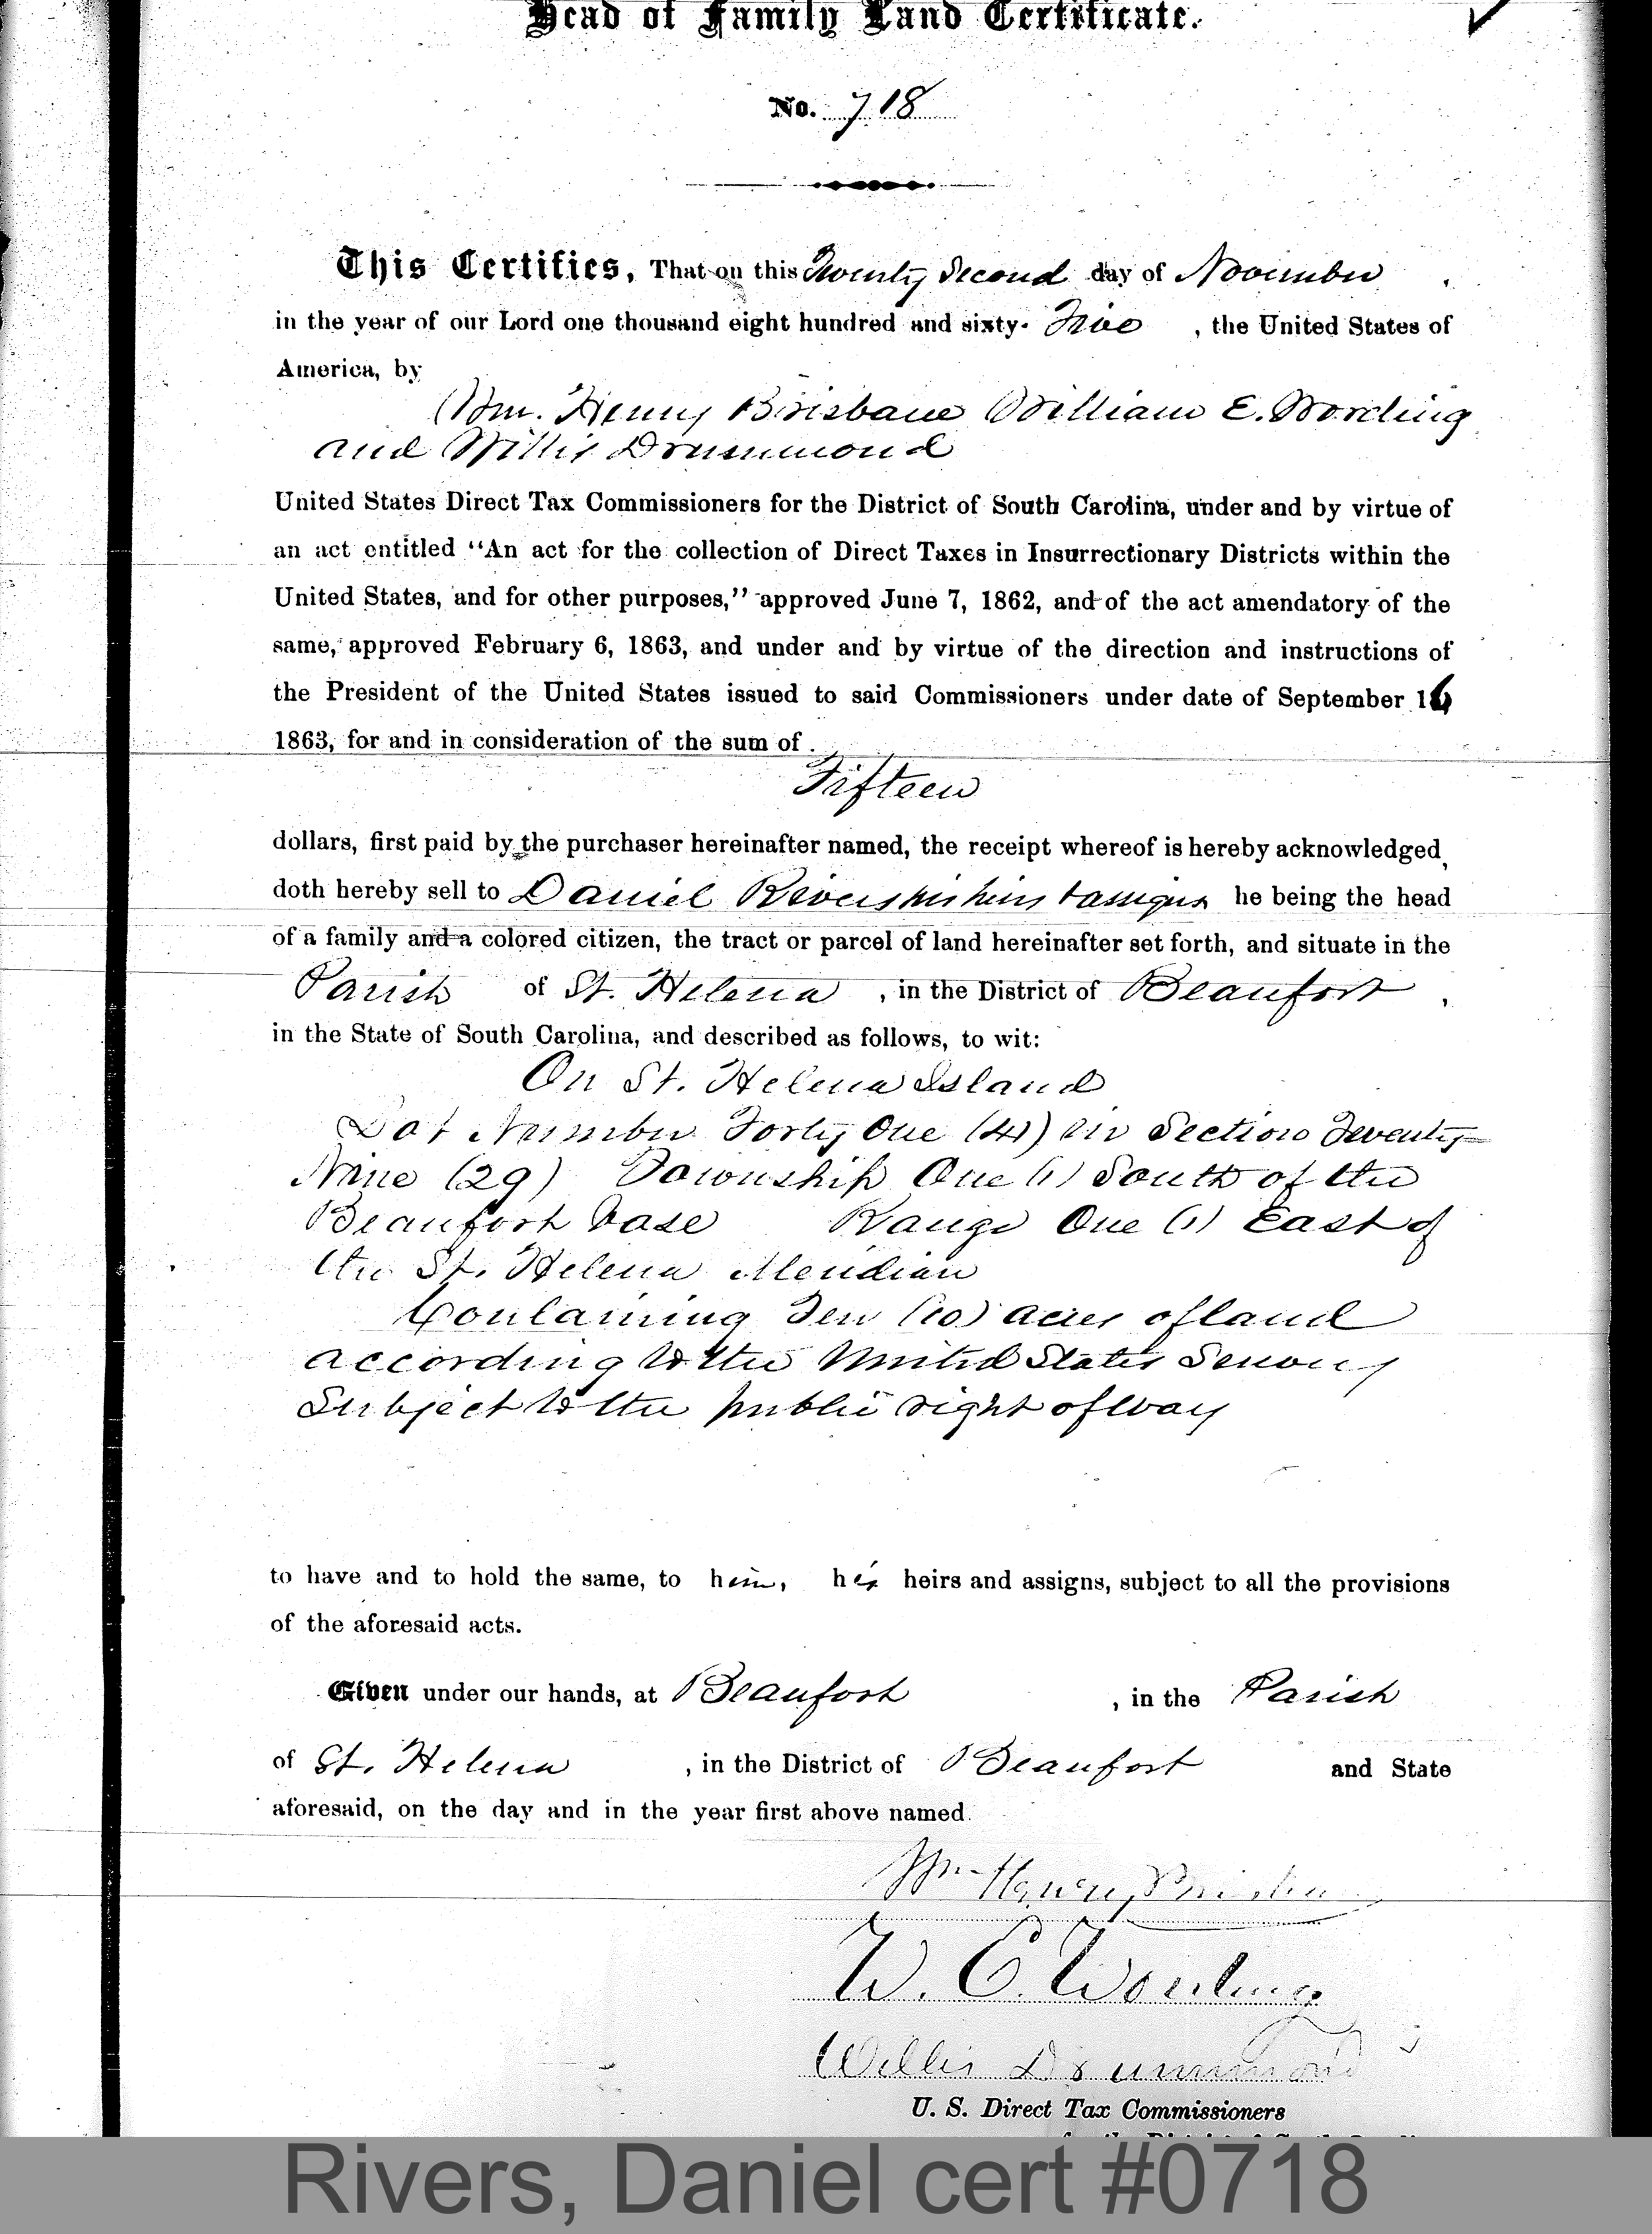 Head of Family Land Certificate.
No. 718
This Certifies, That on this Twenty Second day of November
in the year of our Lord one thousand eight hundred and sixty- Five , the United States of
America, by
Wm. Henry Brisbane William E. Wording
and Willis Drummond
United States Direct Tax Commissioners for the District of South Carolina, under and by virtue of
an act entitled "An act for the collection of Direct Taxes in Insurrectionary Districts within the
United States, and for other purposes," approved June 7, 1862, and of the act amendatory of the
same, approved February 6, 1863, and under and by virtue of the direction and instructions of
the President of the United States issued to said Commissioners under date of September 16
1863, for and in consideration of the sum of
Fifteen
dollars, first paid by the purchaser hereinafter named, the receipt whereof is hereby acknowledged,
doth hereby sell to Daniel Rivers his heirs & assigns he being the head
of a family and a colored citizen, the tract or parcel of land hereinafter set forth, and situate in the
Parish of St. Helena , in the District of Beaufort ,
in the State of South Carolina, and described as follows, to wit:
On St. Helena Island
Lot Number Forty One (41) in Section Twenty
Nine (29) Township One (1) South of the
Beaufort base Range One (1) East of
the St. Helena Meridian
Containing Ten (10) acres of land
according to the United States Survey
Subject to the public right of way
to have and to hold the same, to him, his heirs and assigns, subject to all the provisions
of the aforesaid acts.
Given under our hands, at Beaufort , in the Parish
of St. Helena , in the District of Beaufort and State
aforesaid, on the day and in the year first above named.
Wm Henry Brisbane
W. E. Wording
Willis Drummond
U. S. Direct Tax Commissioners
Rivers, Daniel cert #0718